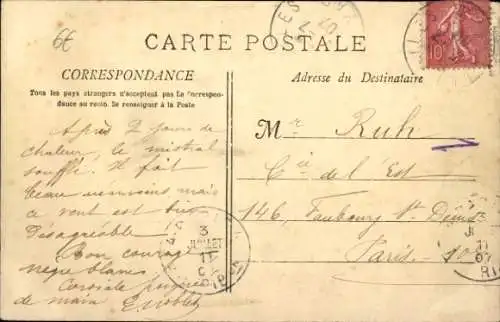 6€
CARTE POSTALE
CORRESPONDANCE
Tous les pays étrangers n'acceptent pas la Correspon-
dance au recto. Se renseigner à la Poste
Adresse du Destinataire
Après 2 jours de
chaleur, le mistral
souffle. Il fait
beau néanmoins mais
ce vent est bien
désagréable.
Bon courage
nègre blanc
Cordiale poignée
de main
Mr Ruh
Cie de l'Est
146, Faubourg St Denis
Paris - 10e
3
JUILLET
11
10c